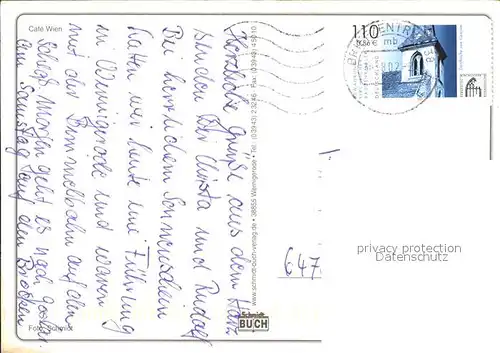 Café Wien
Herzliche Grüße aus dem Harz
senden Christa und Rudolf
Bei herrlichem Sonnenschein
hatten wir heute eine Führung
in Wernigerode und waren
mit der Bimmelbahn auf dem
Schloß. Morgen geht es nach Goslar.
am Samstag auf den Brocken
Foto: Schmidt
www.schmidt-buch-verlag.de • 38855 Wernigerode • Tel. (03943) 23246 • Fax (03943) 45010
Schmidt
BUCH
110
0,56 €
DEUTSCHLAND
BRIEFZENTRUM
mb
8.02
38
647
privacy protection
DELCAMPE